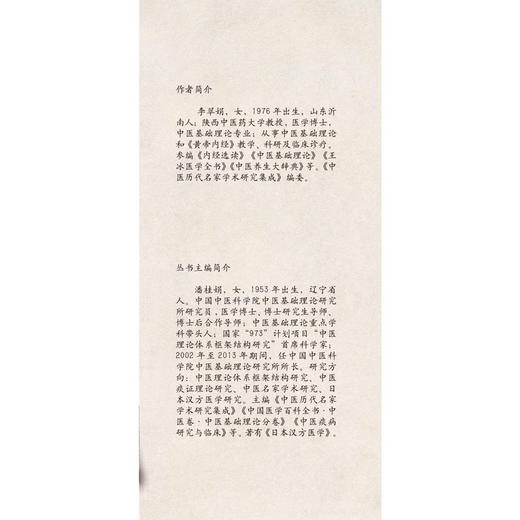 作者简介
李翠娟，女，1976年出生，山东沂
南人；陕西中医药大学教授，医学博士，
中医基础理论专业；从事中医基础理论
和《黄帝内经》教学、科研及临床诊疗。
参编《内经选读》《中医基础理论》《王
冰医学全书》《中医养生大辞典》等。《中
医历代名家学术研究集成》编委。
丛书主编简介
潘桂娟，女，1953年出生，辽宁省
人。中国中医科学院中医基础理论研究
所研究员，医学博士、博士研究生导师、
博士后合作导师；中医基础理论重点学
科带头人；国家“973”计划项目“中医
理论体系框架结构研究”首席科学家；
2002年至2013年期间，任中国中医科
学院中医基础理论研究所所长。研究方
向：中医理论体系框架结构研究、中医
痰证理论研究、中医名家学术研究、日
本汉方医学研究。主编《中医历代名家
学术研究集成》《中国医学百科全书·中
医卷·中医基础理论分卷》《中医痰病
研究与临床》等。著有《日本汉方医学》。